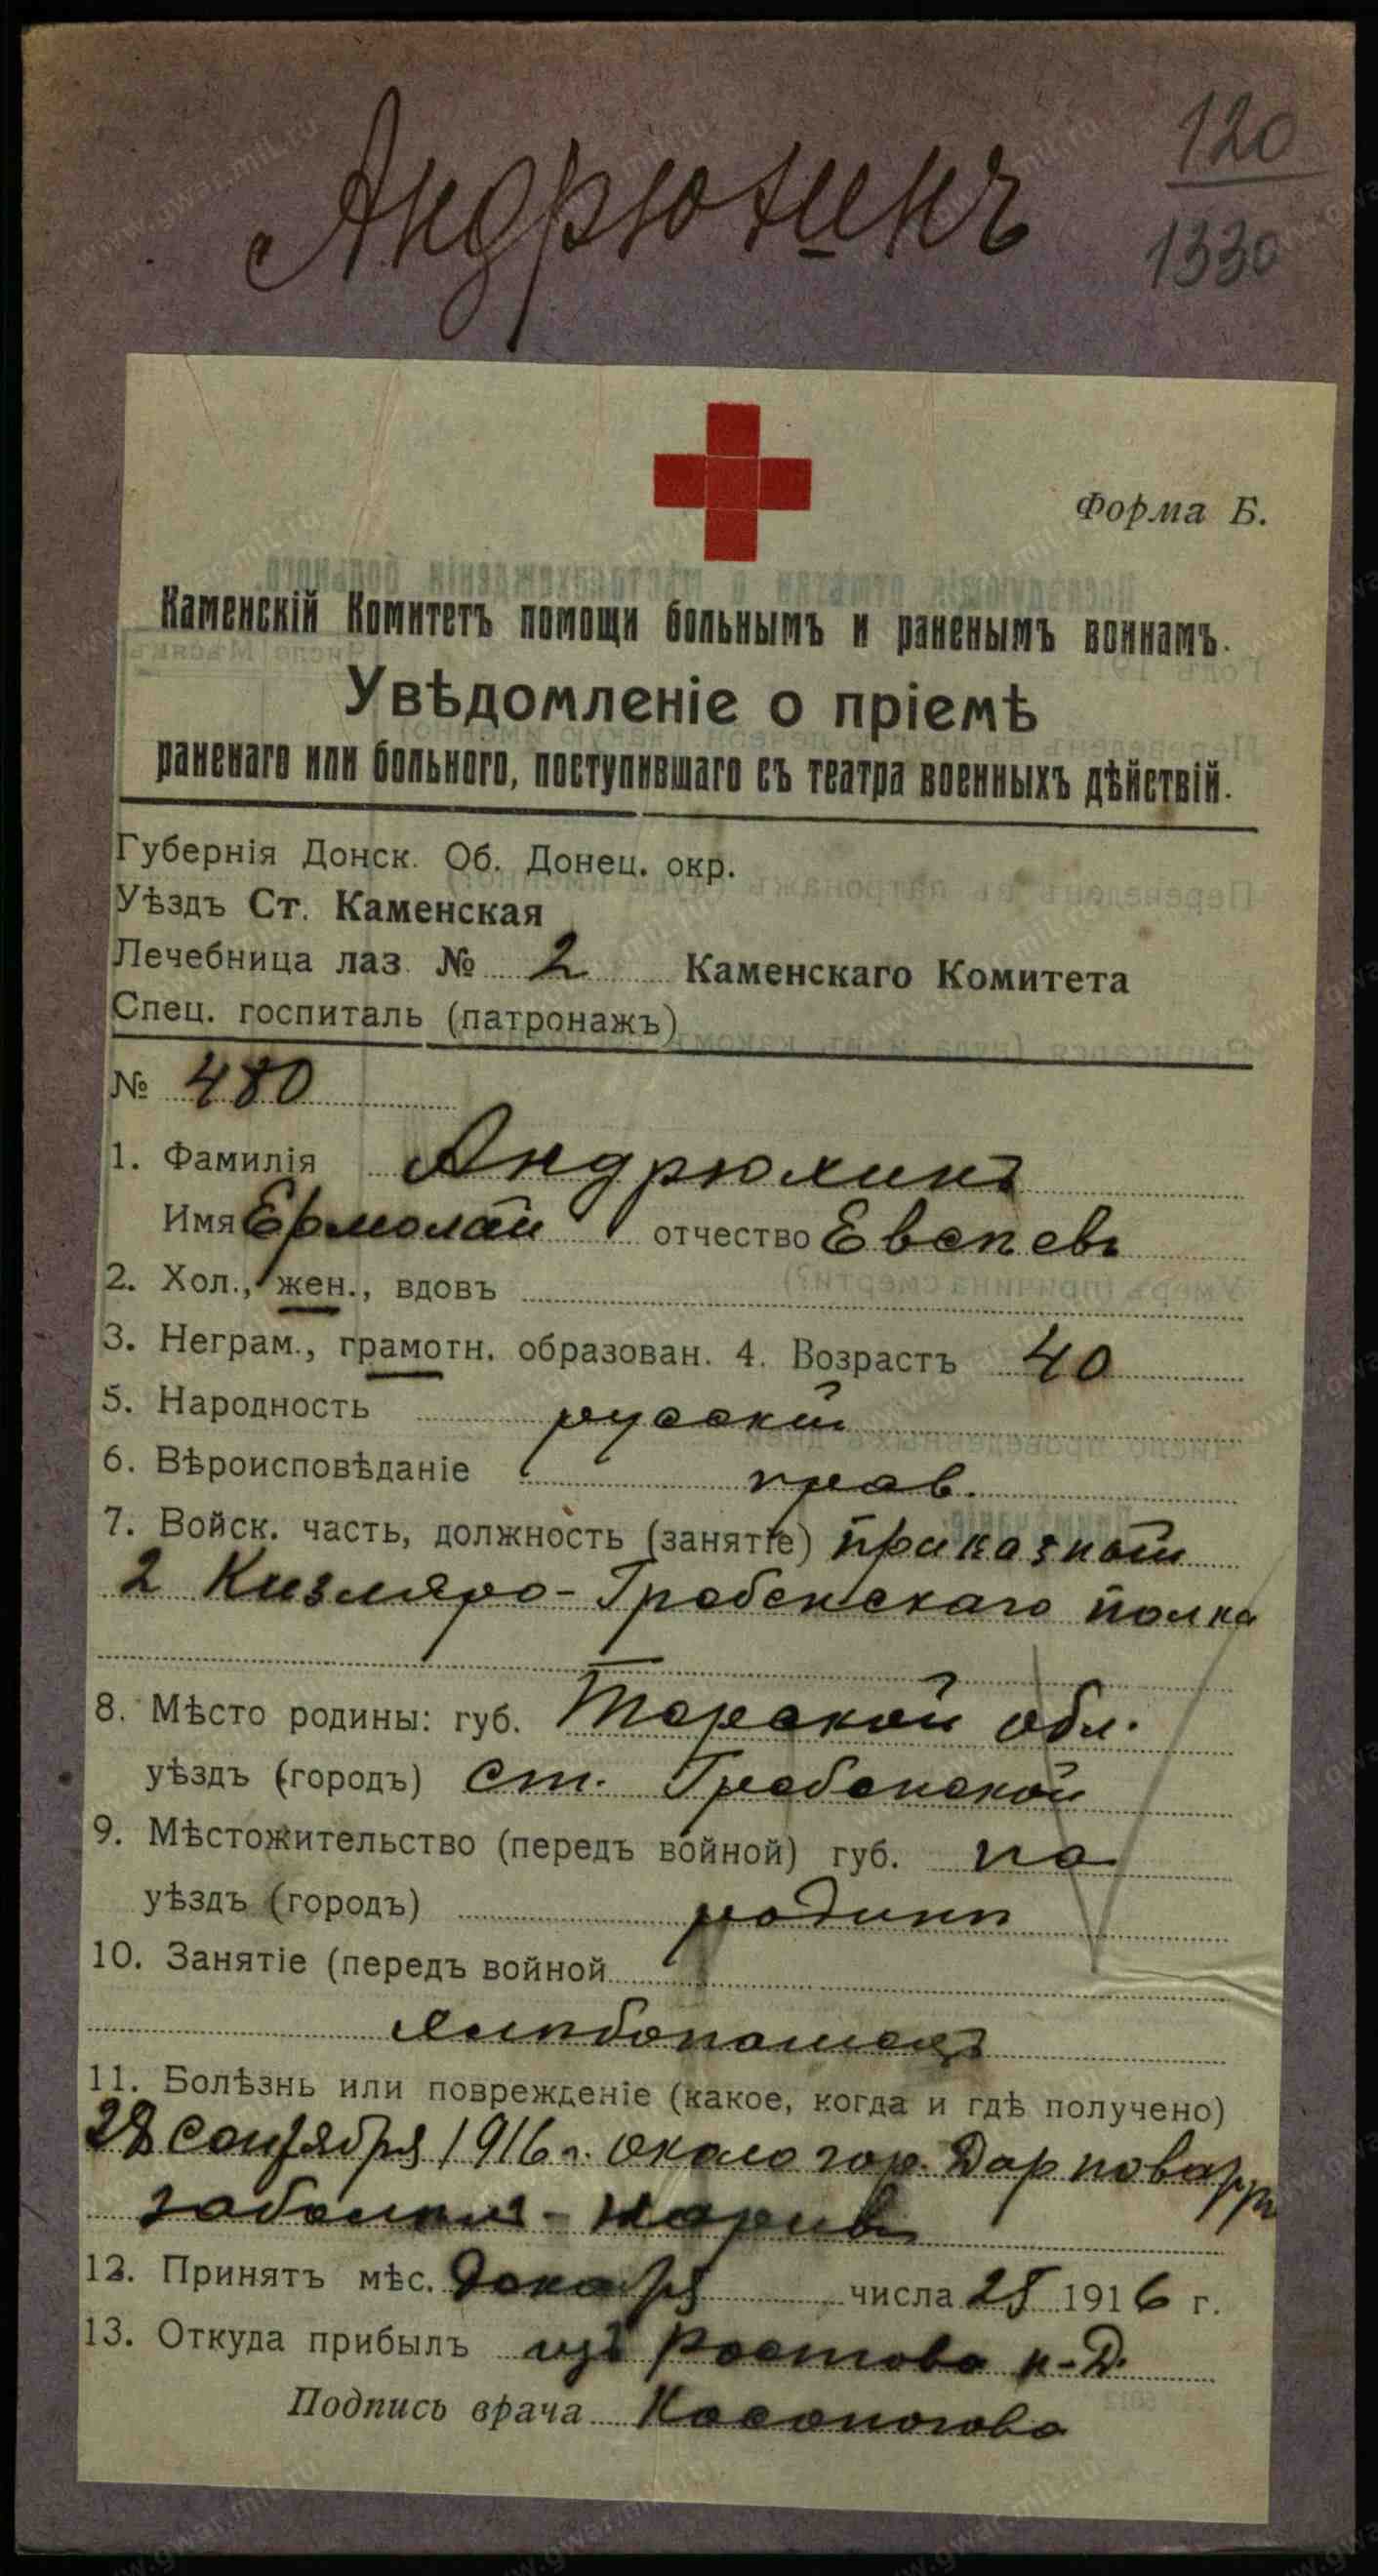 Андрюхинъ
120
1330
Форма Б.
Каменскій Комитетъ помощи больнымъ и раненымъ воинамъ.
Увѣдомленіе о пріемѣ
раненаго или больного, поступившаго съ театра военныхъ дѣйствій.
Губернія Донск. Об. Донец. окр.
Уѣздъ Ст. Каменская
Лечебница лаз. № 2 Каменскаго Комитета
Спец. госпиталь (патронажъ)
№ 480
1. Фамилія Андрюхинъ
Имя Ермолай отчество Евсѣевъ
2. Хол., жен., вдовъ
3. Неграм., грамотн. образован. 4. Возрастъ 40
5. Народность русскій
6. Вѣроисповѣданіе прав.
7. Войск. часть, должность (занятіе) приказный
2 Кизляро-Гребенскаго полка
8. Мѣсто родины: губ. Терской обл.
уѣздъ (городъ) ст. Гребенской
9. Мѣстожительство (передъ войной) губ. на
уѣздъ (городъ) родинѣ
10. Занятіе (передъ войной
хлѣбопашецъ
11. Болѣзнь или поврежденіе (какое, когда и гдѣ получено)
28 сентября 1916 г. около гор.
заболѣлъ -
12. Принятъ мѣс. Декабря числа 25 1916 г.
13. Откуда прибылъ изъ Ростова н-Д.
Подпись врача Косоногова
www.gwar.mil.ru